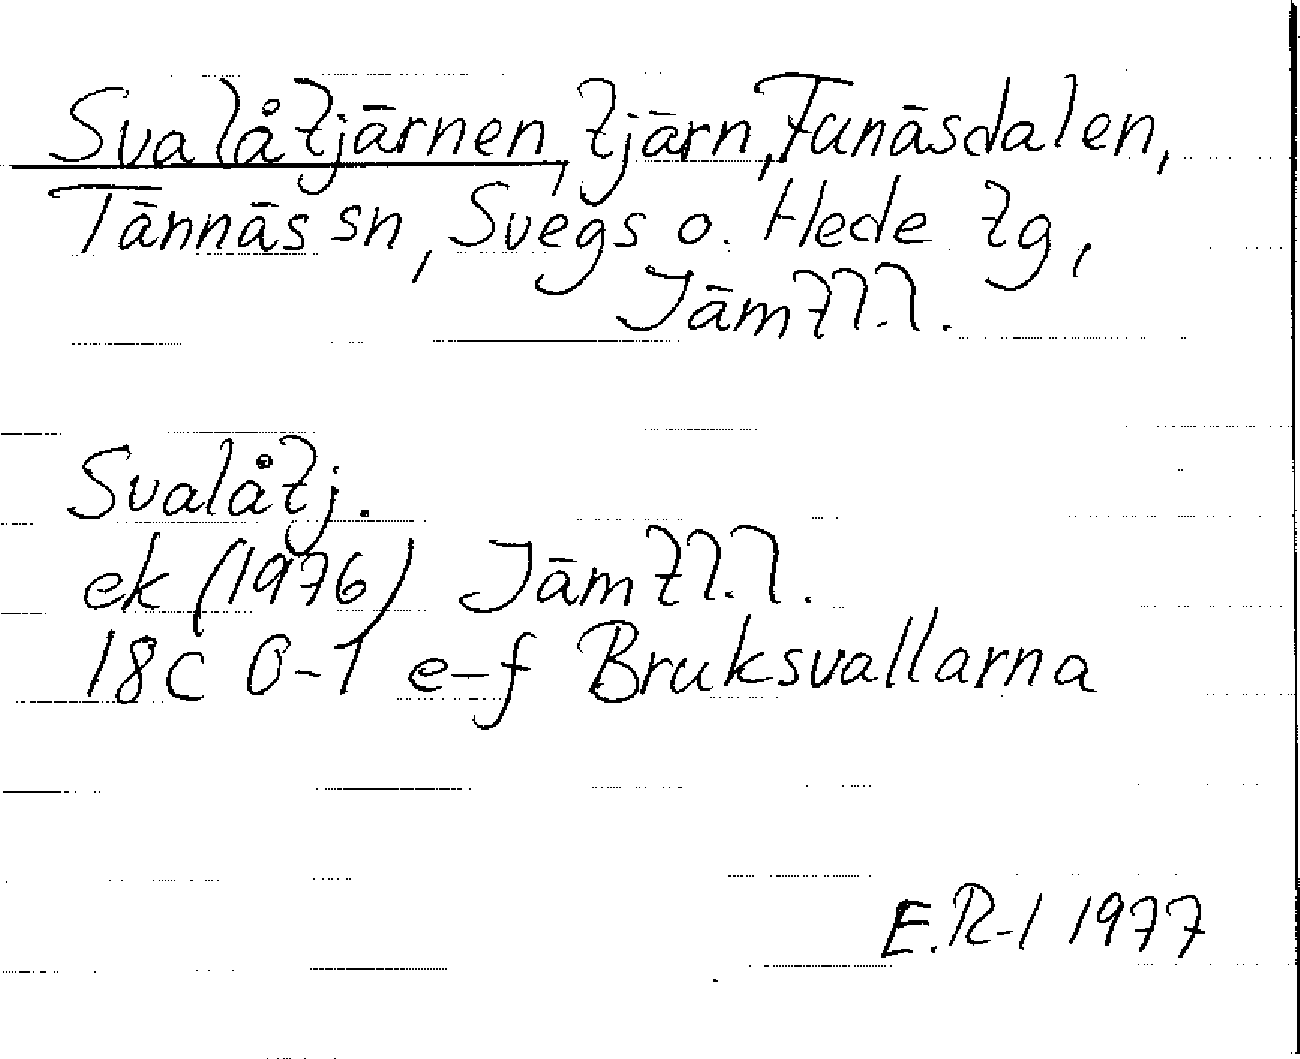 Svalåtjärnen, tjärn, Funäsdalen,
Tännäs sn, Svegs o. Hede tg,
Jämtl.l.
Svalåtj.
ek (1976) Jämtl.l.
18C 0-1 e-f Bruksvallarna
E.R-l 1977